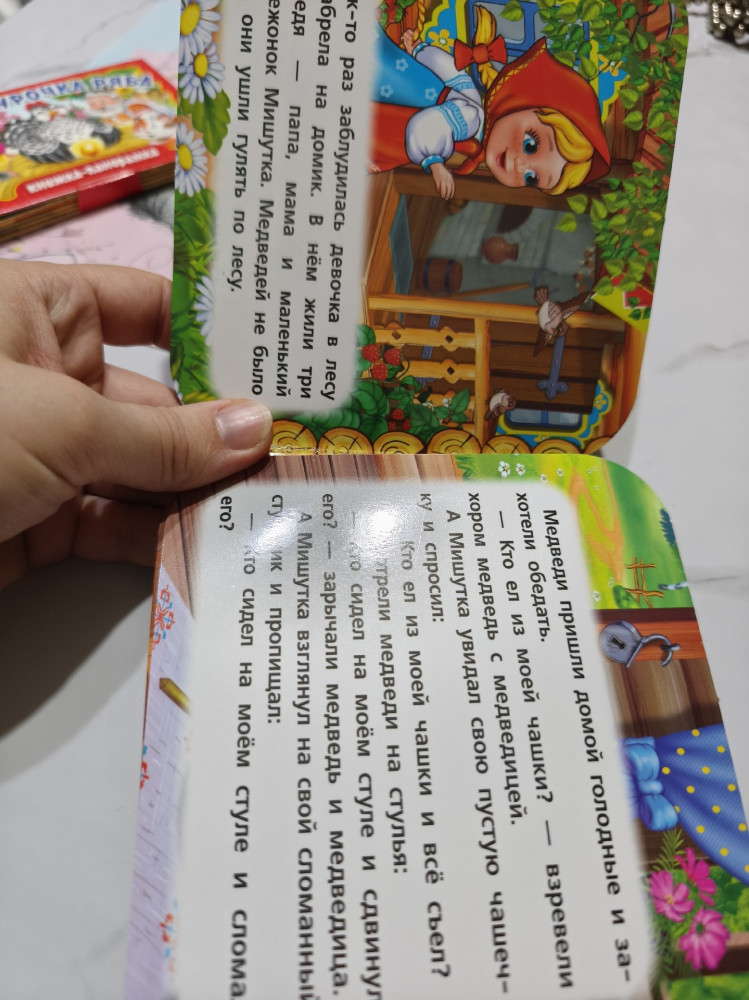 УРОЧКА РЯБА
КНИЖКА-ПАНОРАМКА
к-то раз заблудилась девочка в лесу
абрела на домик. В нём жили три
едя — папа, мама и маленький
ежонок Мишутка. Медведей не было
они ушли гулять по лесу.
Медведи пришли домой голодные и за-
хотели обедать.
— Кто ел из моей чашки? — взревели
хором медведь с медведицей.
А Мишутка увидал свою пустую чашеч-
ку и спросил:
Кто ел из моей чашки и всё съел?
отрели медведи на стулья:
— то сидел на моём стуле и сдвинул
его? — зарычали медведь и медведица.
А Мишутка взглянул на свой сломанный
сту ик и пропищал:
— то сидел на моём стуле и слома
его?